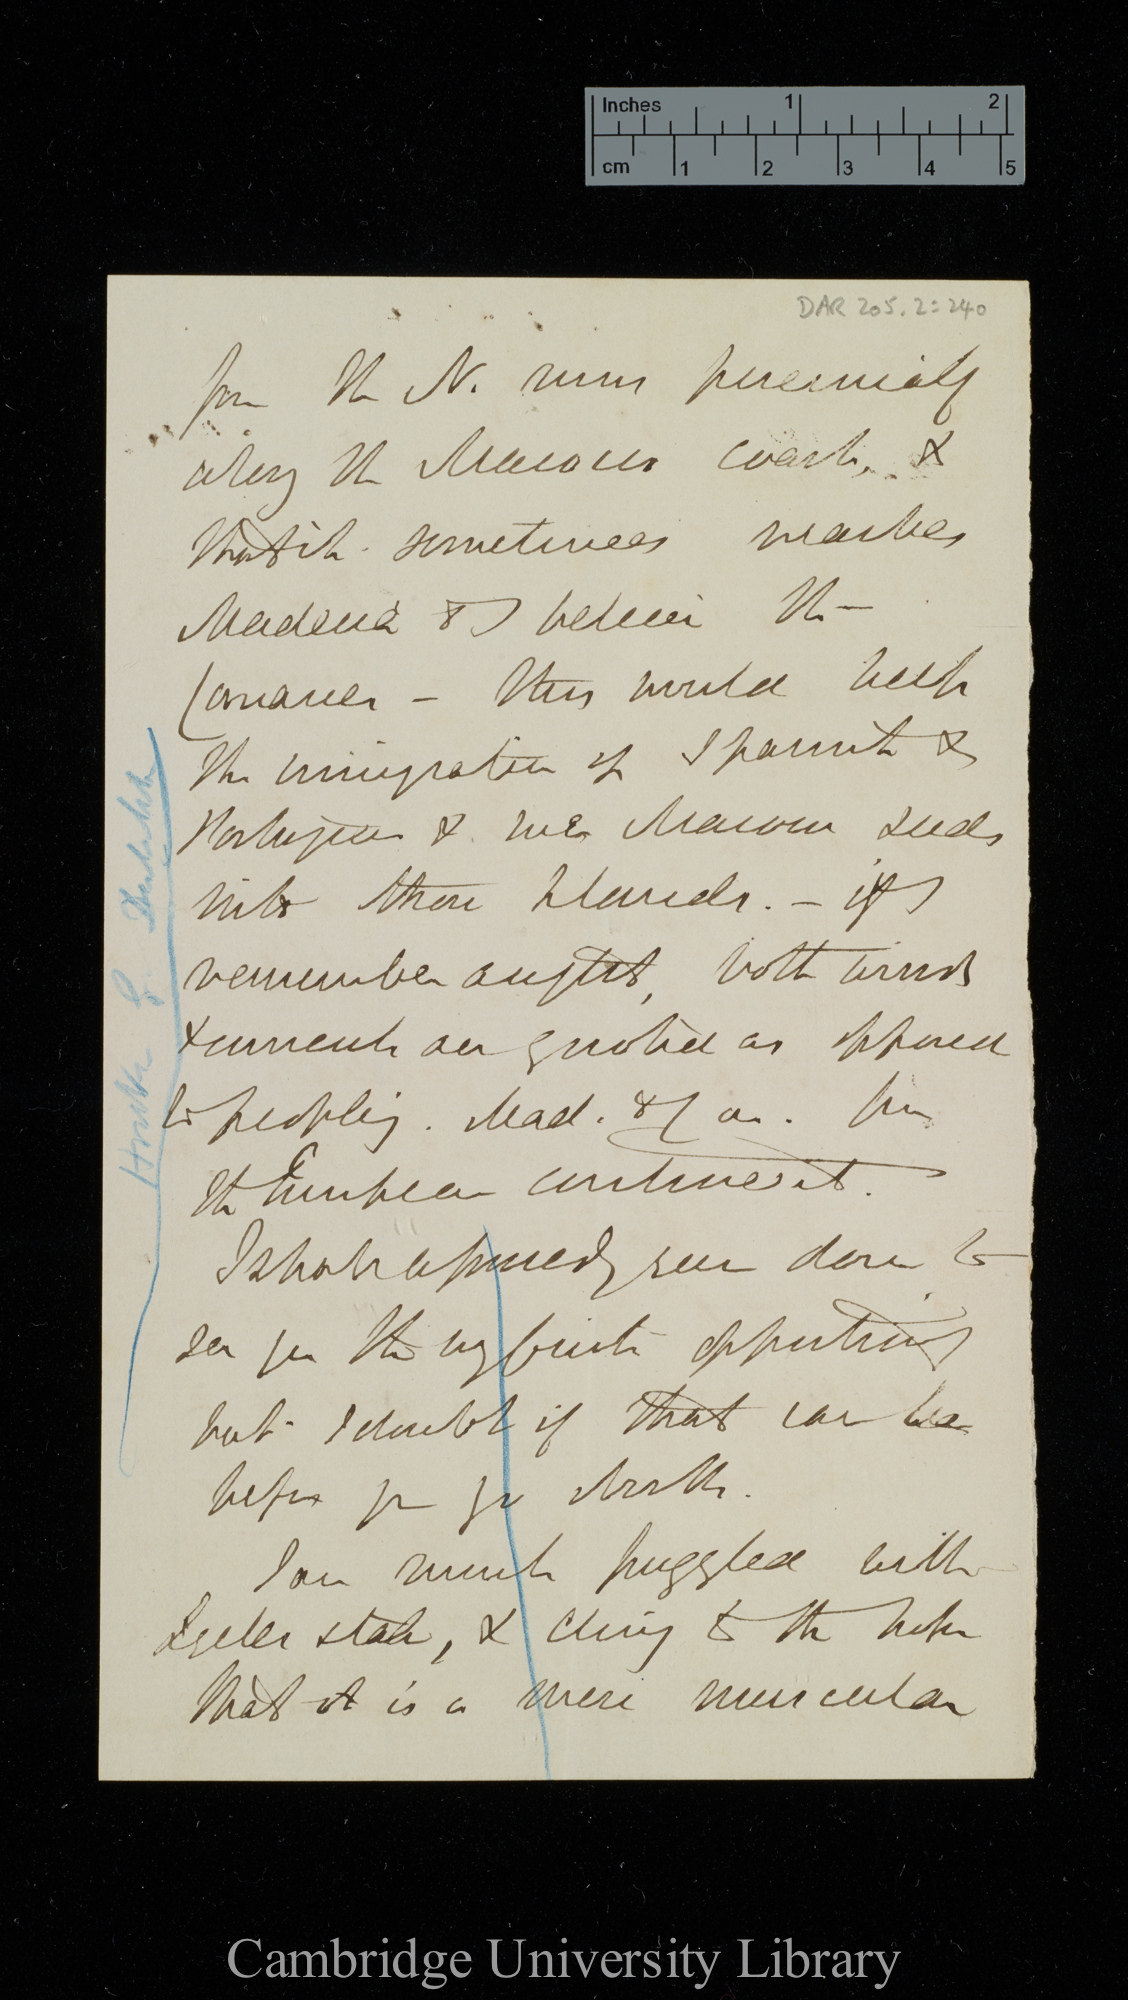 Inches 1 2
cm 1 2 3 4 5
DAR 205.2:240
from the N. runs perennially
along the Marocco coast, &
that it sometimes reaches
Madeira & I believe the
Canaries — this would help
the immigration of Spanish &
Portuguese & even Marocco seeds
into these Islands. — if I
remember aright, both winds
& currents are quoted as opposed
to peopling. Mad. & Can. from
the European continent.
I shall assuredly run down to
see you the very first opportunity
but I doubt if that can be
before you go North.
I am much puzzled with
state, & cling to the hope
that it is a mere muscular
Cambridge University Library